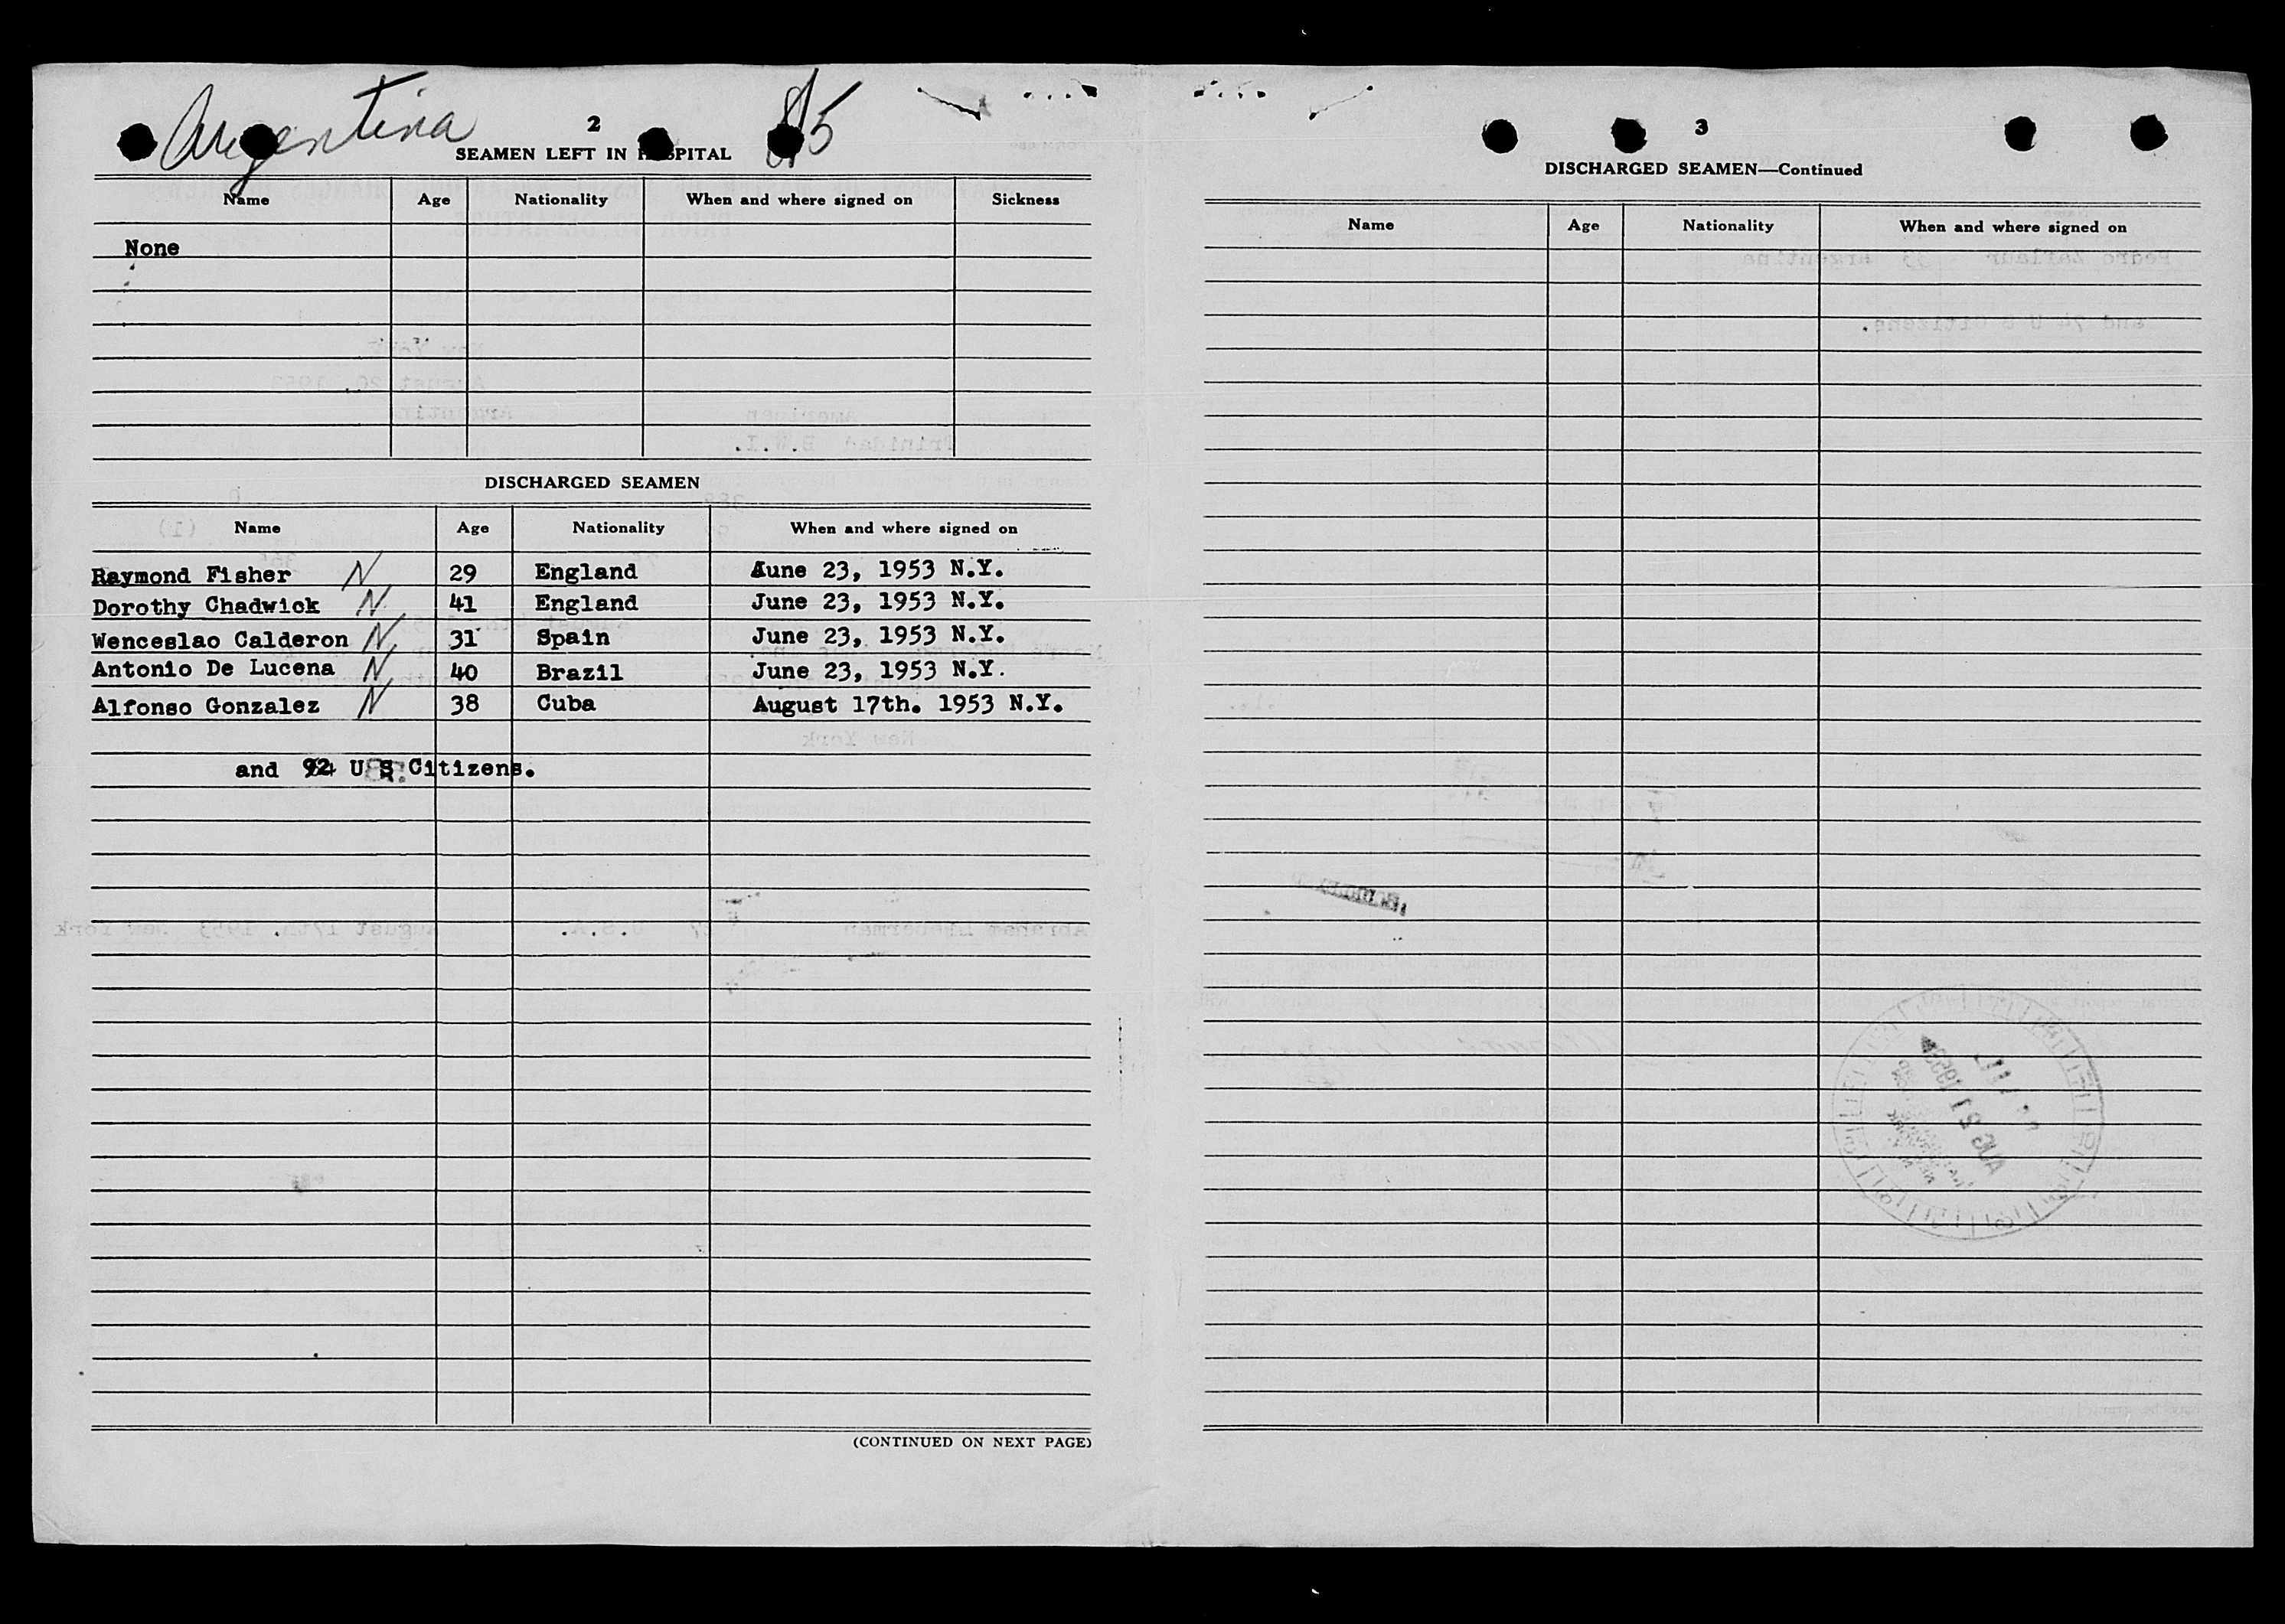 Argentina
2
SEAMEN LEFT IN HOSPITAL
Name Age Nationality When and where signed on Sickness
None
DISCHARGED SEAMEN
Name Age Nationality When and where signed on
Raymond Fisher N 29 England June 23, 1953 N.Y.
Dorothy Chadwick N 41 England June 23, 1953 N.Y.
Wenceslao Calderon N 31 Spain June 23, 1953 N.Y.
Antonio De Lucena N 40 Brazil June 23, 1953 N.Y.
Alfonso Gonzalez N 38 Cuba August 17th. 1953 N.Y.
and 92 U S Citizens.
(CONTINUED ON NEXT PAGE)
3
DISCHARGED SEAMEN—Continued
Name Age Nationality When and where signed on